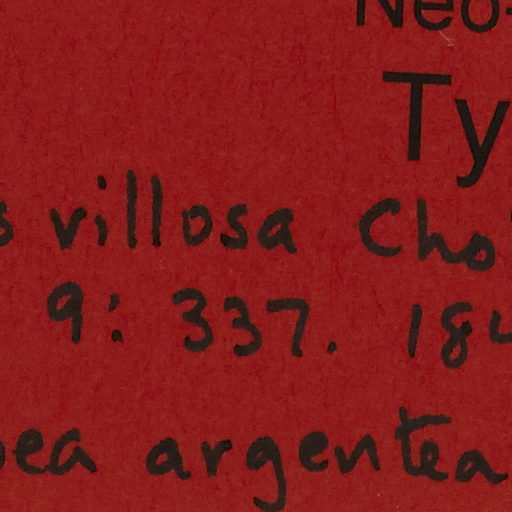 Neo-
Ty
s villosa Cho
9: 337. 184
ea argentea